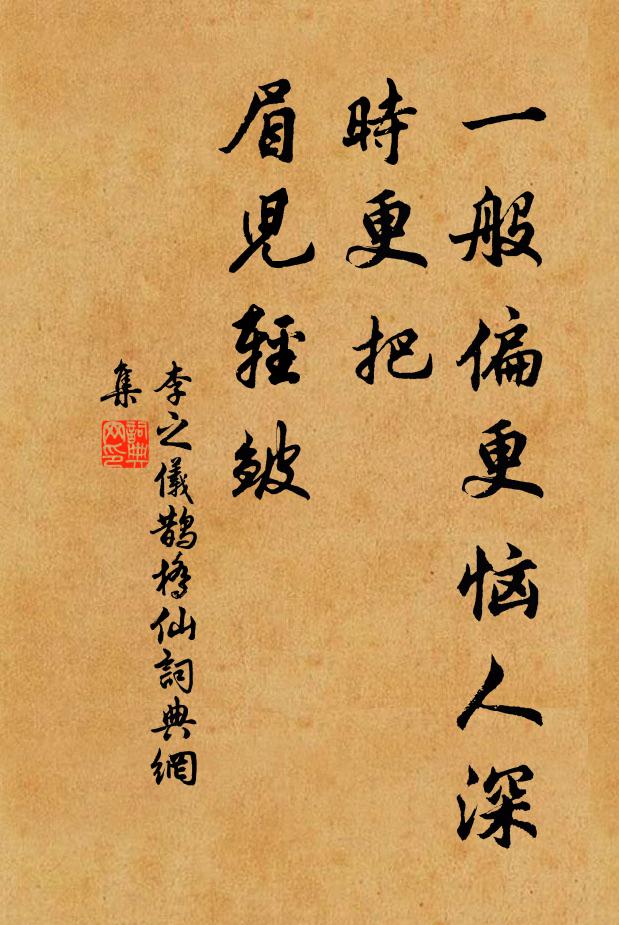 一般偏更恼人深
時更把
眉児輕皺
李之儀鵲橋仙詞典網
集
詞典
网印